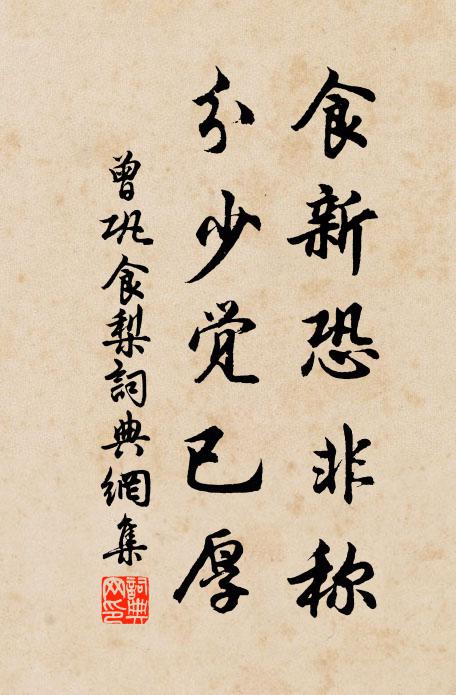 食新恐非称
分少觉已厚
曾巩食梨詞典網集
詞典
网印